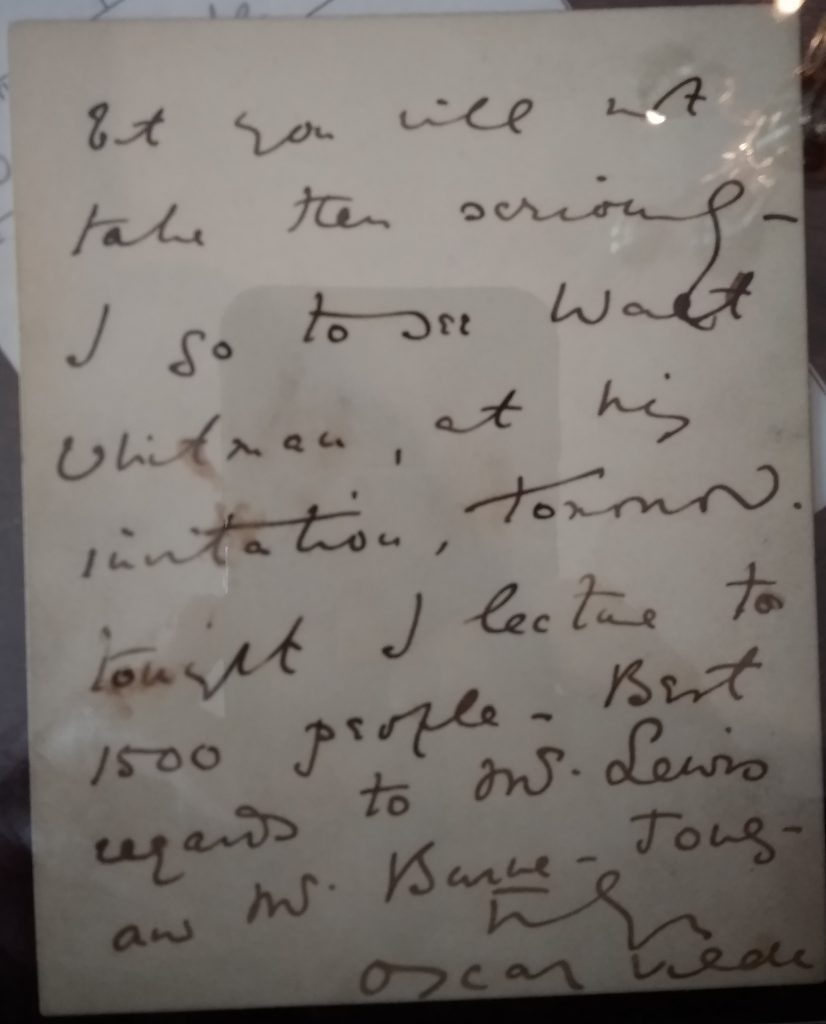 But you will not
take them seriously -
I go to see Walt
Whitman, at his
invitation, tomorrow.
tonight I lecture to
1500 people - Best
regards to Mrs. Lewis
and Mr. Burne-Jones -
Oscar Wilde